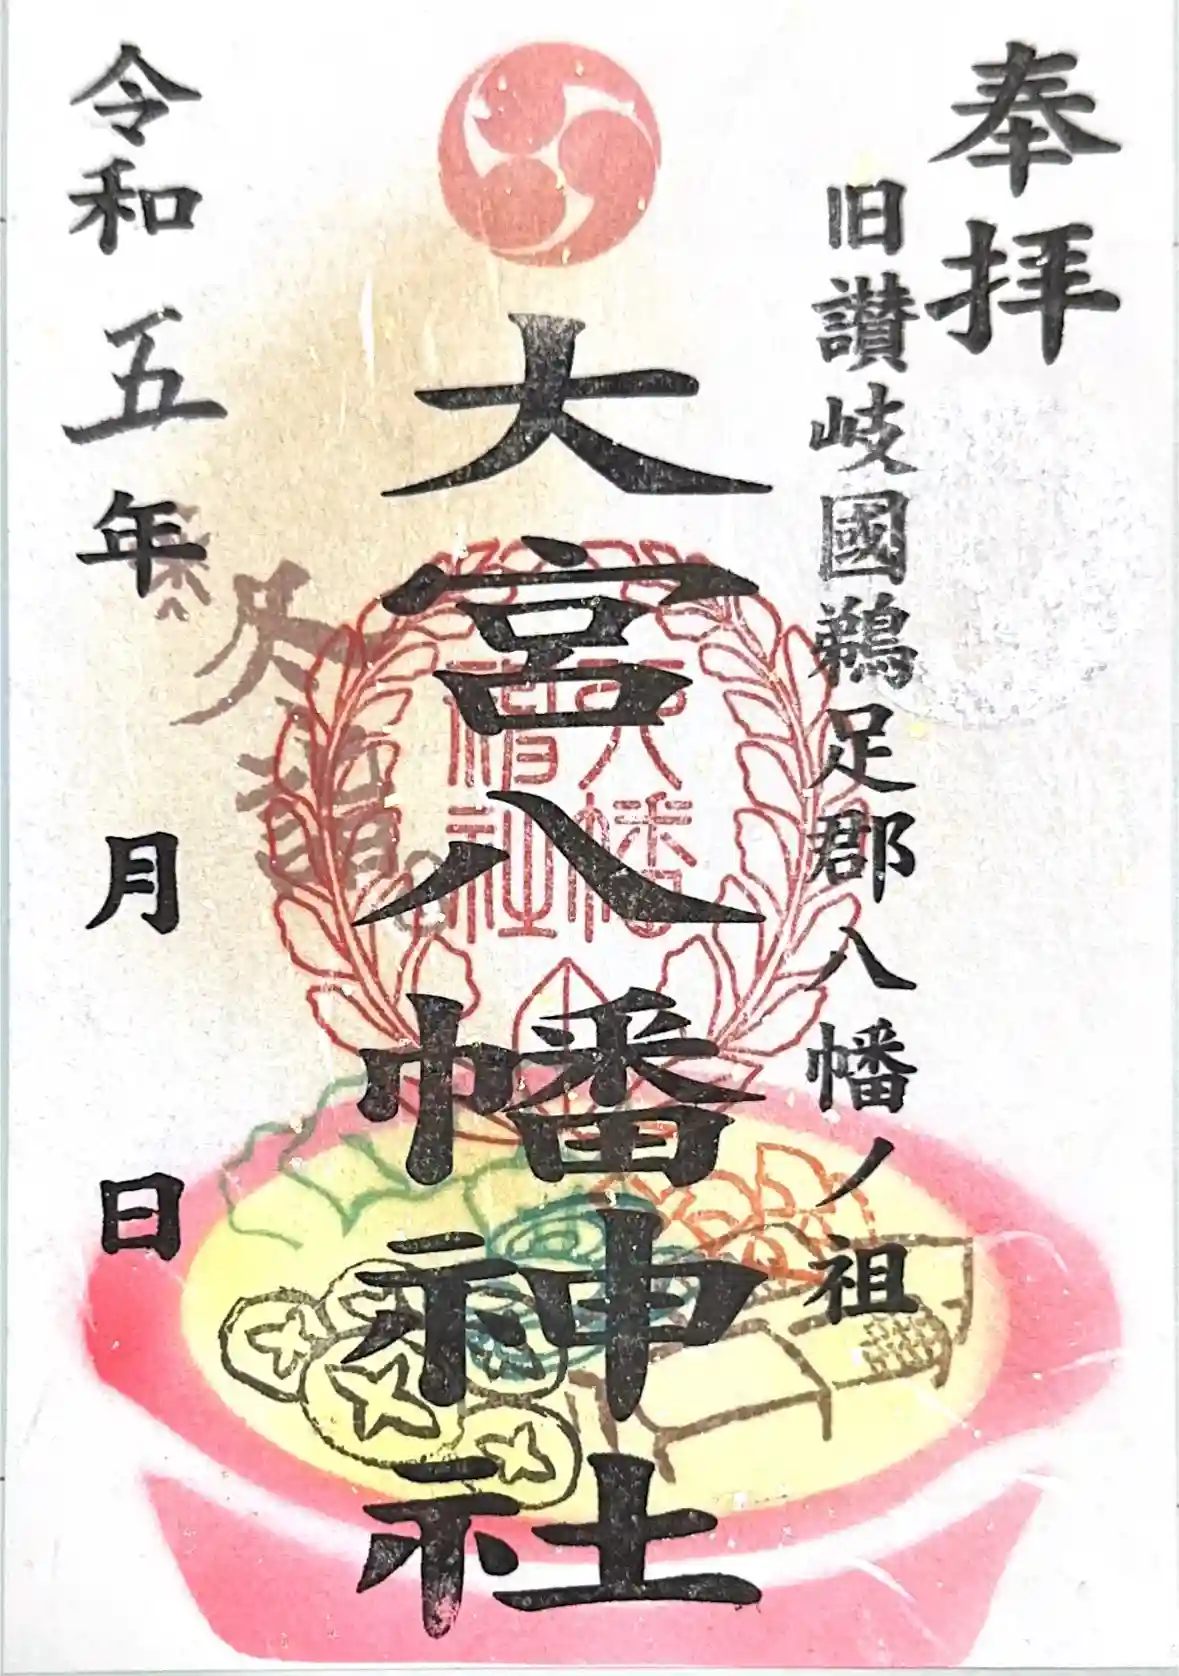 奉拝
旧讃岐國鵜足郡八幡ノ祖
大宮八幡神社
八幡
神社
令和五年 月 日